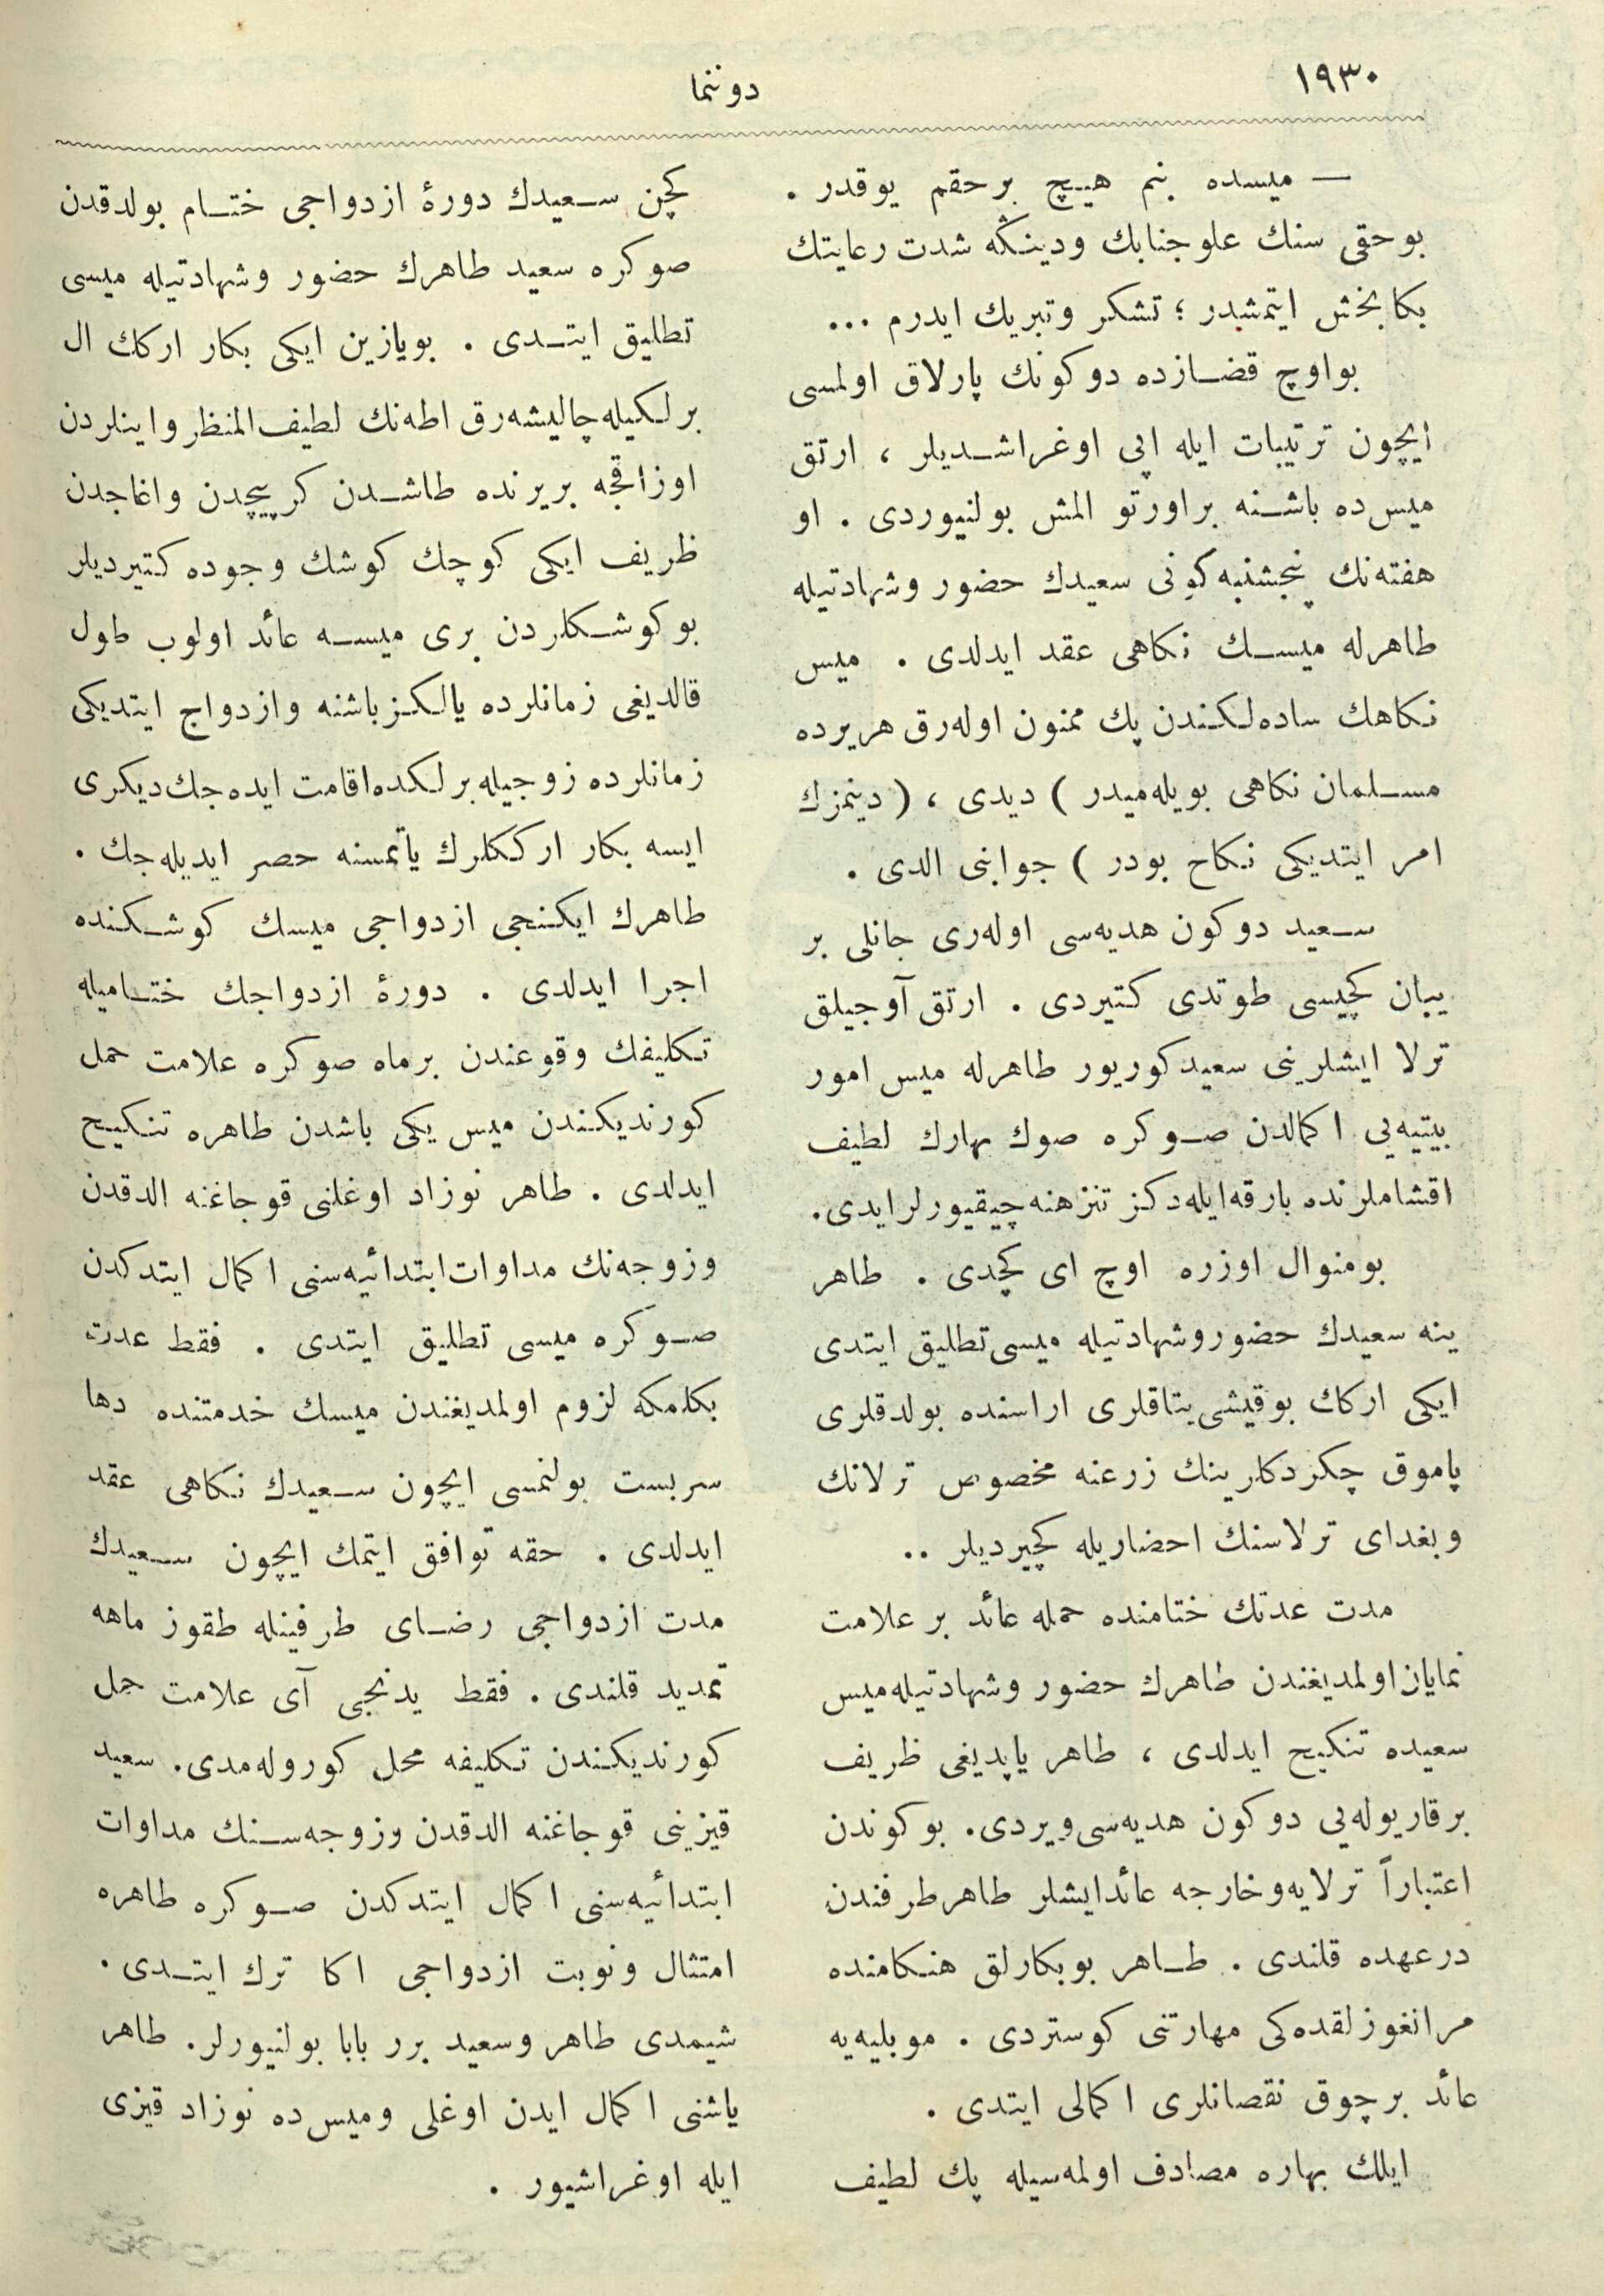 ١٩٣٠
دوننما
— ميسده بنم هيچ برحقم يوقدر .
بوحقى سنك علوجنابك ودينڭه شدت رعايتك
بكا بخش ايتمشدر ؛ تشكر وتبريك ايدرم ...
بواوچ قضازده دوكونك پارلاق اولمسى
ايچون ترتيبات ايله اپى اوغراشديلر ، ارتق
ميس ده باشنه براورتو المش بولنيوردى . او
هفته‌نك پنجشنبه كونى سعيدك حضور وشهادتيله
طاهرله ميسك نكاهى عقد ايدلدى . ميس
نكاهك ساده‌لكندن پك ممنون اوله‌رق هريرده
مسلمان نكاهى بويله‌ميدر ) ديدى ، ( دينمزك
امر ايتديكى نكاح بودر ) جوابنى الدى .
سعيد دوكون هديه‌سى اوله‌رى جانلى بر
يبان كچيسى طوتدى كتيردى . ارتق آوجيلق
ترلا ايشلرينى سعيد كوريور طاهرله ميس امور
بيتيه‌يى اكمالدن صوكره صوك بهارك لطيف
اقشاملرنده بارقه ايله دكز تنزهنه چيقيورلر ايدى.
بومنوال اوزره اوچ اى كچدى . طاهر
ينه سعيدك حضوروشهادتيله ميسى تطليق ايتدى
ايكى اركاك بوقيشى يتاقلرى اراسنده بولدقلرى
پاموق چكردكارينك زرعنه مخصوص ترلانك
وبغداى ترلاسنك احضاريله كچيرديلر ..
مدت عدتك ختامنده حمله عائد بر علامت
نمايان اولمديغندن طاهرك حضور وشهادتيله ميس
سعيده تنكيح ايدلدى ، طاهر ياپديغى ظريف
برقاريوله‌يى دوكون هديه‌سى ويردى. بوكوندن
اعتباراً ترلايه وخارجه عائد ايشلر طاهر طرفندن
درعهده قلندى . طاهر بوبكارلق هنكامنده
مرانغوزلقده‌كى مهارتنى كوستردى . موبليه‌يه
عائد برچوق نقصانلرى اكمالى ايتدى .
ايلك بهاره مصادف اولمه‌سيله پك لطيف
كچن سعيدك دورهٔ ازدواجى ختام بولدقدن
صوكره سعيد طاهرك حضور وشهادتيله ميسى
تطليق ايتدى . بويازين ايكى بكار اركك ال
برلكيله چاليشه‌رق اطه‌نك لطيف‌المنظر واينلردن
اوزاقجه بريرنده طاشدن كرپيچدن واغاجدن
ظريف ايكى كوچك كوشك وجوده كتيرديلر
بوكوشكلردن برى ميسه عائد اولوب طول
قالديغى زمانلرده يالكز باشنه وازدواج ايتديكى
زمانلرده زوجيله برلكده اقامت ايده‌جك ديكرى
ايسه بكار ارككلرك ياتمسنه حصر ايديله‌جك .
طاهرك ايكنجى ازدواجى ميسك كوشكنده
اجرا ايدلدى . دورهٔ ازدواجك ختاميله
تكليفك وقوعندن برماه صوكره علامت حمل
كورنديكندن ميس يكى باشدن طاهره تنكيح
ايدلدى . طاهر نوزاد اوغلنى قوجاغنه الدقدن
وزوجه‌نك مداوات ابتدائيه‌سنى اكمال ايتدكدن
صوكره ميسى تطليق ايتدى . فقط عدت
بكلمكه لزوم اولمديغندن ميسك خدمتنده دها
سربست بولنمسى ايچون سعيدك نكاهى عقد
ايدلدى . حقه توافق ايتمك ايچون سعيدك
مدت ازدواجى رضاى طرفينله طقوز ماهه
تمديد قلندى . فقط يدنجى آى علامت حمل
كورنديكندن تكليفه محل كورولمه‌مدى. سعيد
قيزينى قوجاغنه الدقدن وزوجه‌سنك مداوات
ابتدائيه‌سنى اكمال ايتدكدن صوكره طاهره
امتثال ونوبت ازدواجى اكا ترك ايتدى .
شيمدى طاهر وسعيد برر بابا بولنيورلر. طاهر
ياشنى اكمال ايدن اوغلى وميس ده نوزاد قيزى
ايله اوغراشيور .